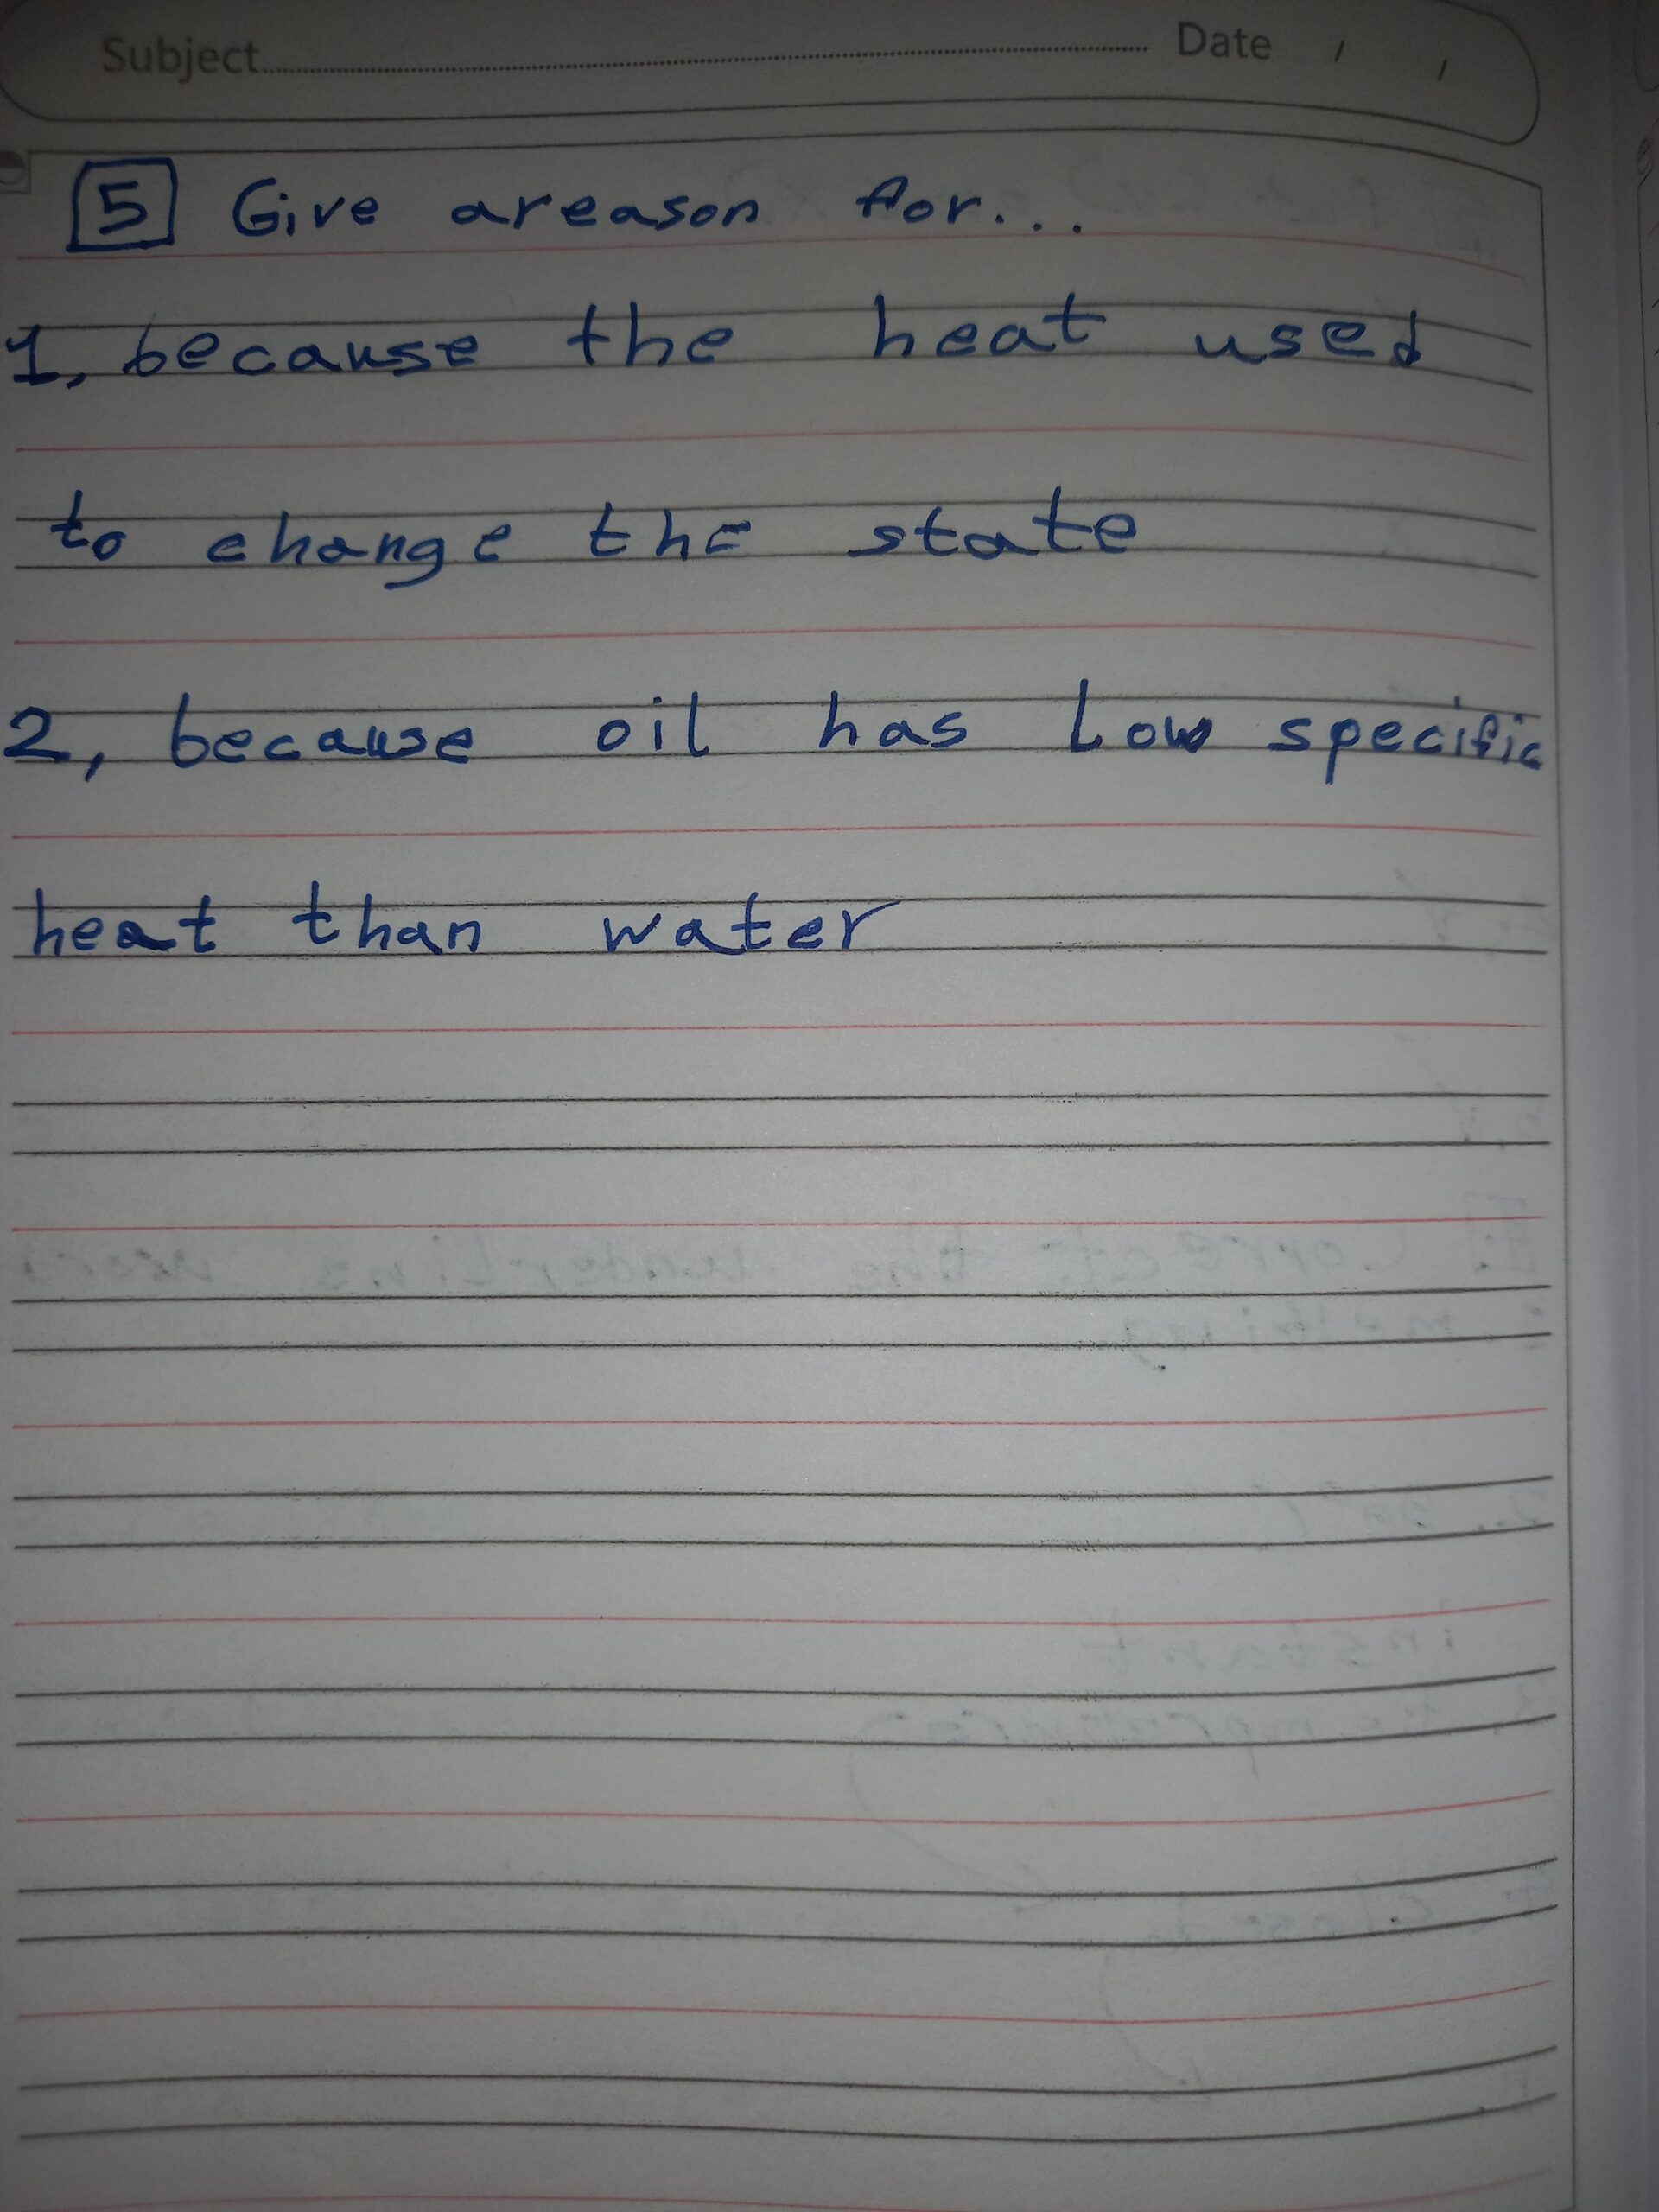 Subject Date / /
5 Give areason for...
1, because the heat used
to change the state
2, because oil has Low specific
heat than water